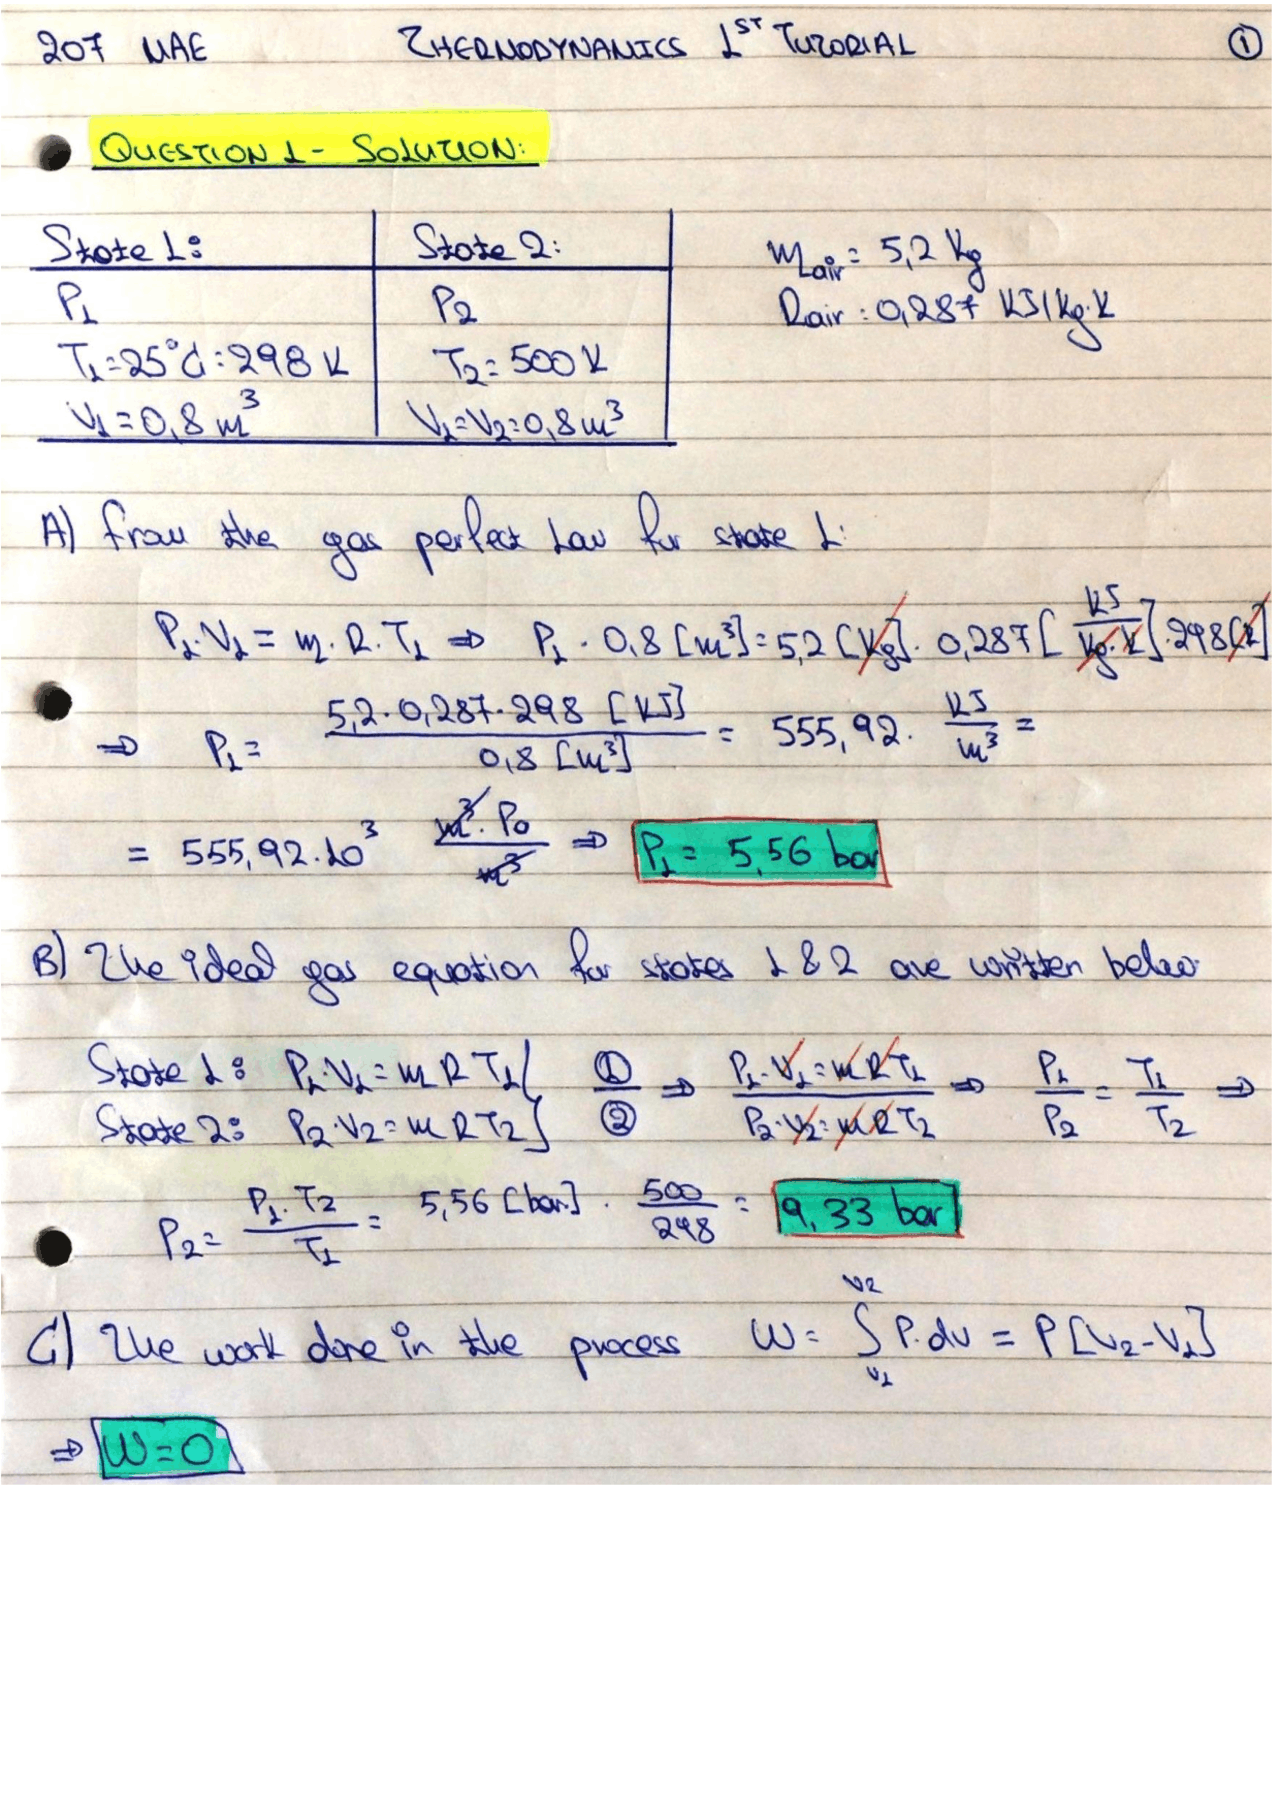 207 MAE THERMODYNAMICS 1ST TUTORIAL ①
QUESTION 1 - SOLUTION:
State 1: State 2: m_air = 5,2 Kg
P1 P2 Rair = 0,287 KJ/Kg.K
T1 = 25°C = 298 K T2 = 500 K
V1 = 0,8 m³ V1 = V2 = 0,8 m³
A) from the gas perfect Law for state 1:
P1·V1 = m·R·T1 ⇒ P1 · 0,8 [m³] = 5,2 [Kg]. 0,287 [KJ/Kg.K] . 298 [K]
⇒ P1 = 5,2·0,287·298 [KJ] / 0,8 [m³] = 555,92. KJ/m³ =
= 555,92.10³ m³. Pa / m³ ⇒ P1 = 5,56 bar
B) The ideal gas equation for states 1 & 2 are written below
State 1: P1·V1 = m R T1 ① ⇒ P1·V1 = m R T1 ⇒ P1/P2 = T1/T2 ⇒
State 2: P2·V2 = m R T2 ② P2·V2 = m R T2
P2 = P1·T2 / T1 = 5,56 [bar] . 500/298 = 9,33 bar
C) The work done in the process W = ∫ v1 v2 P·dv = P[V2-V1]
⇒ W = 0